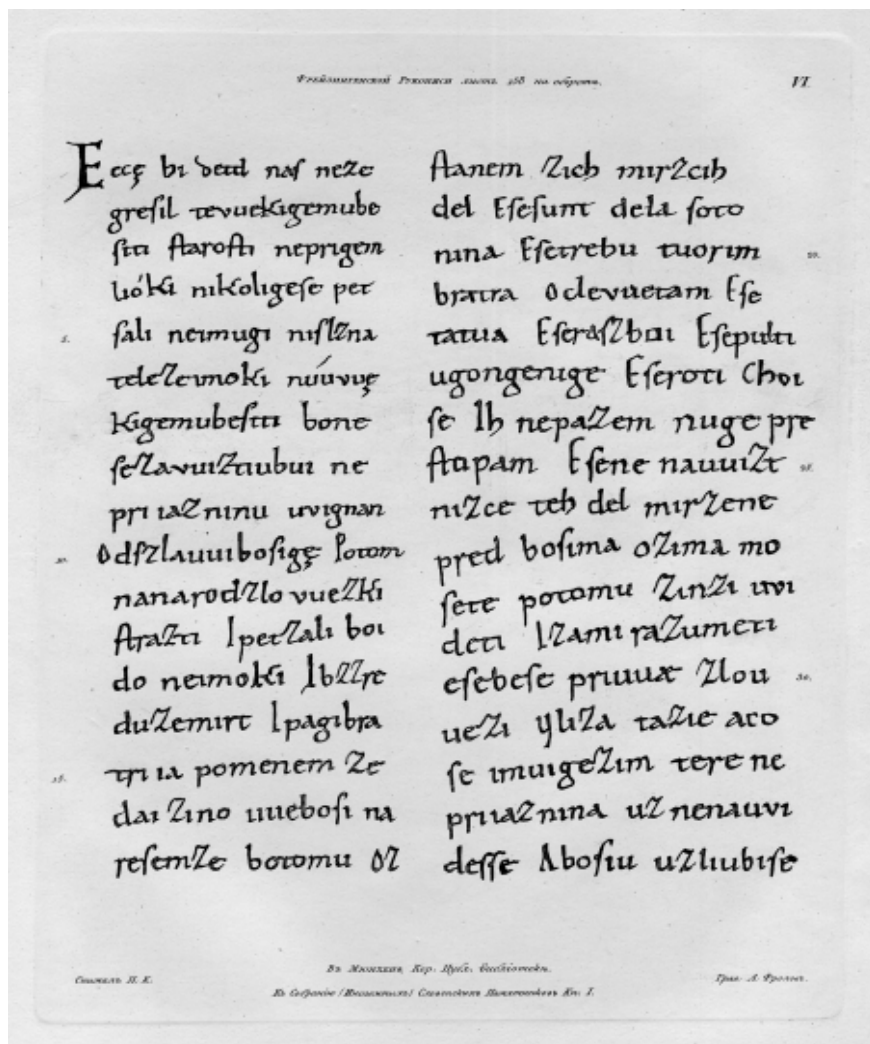 Фрейзингенской Рукописи листъ 158 на оборотѣ.
VI.
Eccę bi detd naſ neze
greſil teuuekigemube
ſiti ſtaroſti neprigem
lióki nikoligeſe pet
5.
ſali neimugi niſlzna
telezeimoki núuvvę
kigemubeſiti bone
ſezavuiztiubui ne
pri iazninu uvignan
10.
Odſzlauuiboſigę Potom
nanarodzlo vuezki
ſtrazti Ipetzali boi
do neimoki Ibzzre
duzemirt Ipagibra
15.
tri ia pomenem ze
dai zino uueboſi na
reſemze botomu oz
ſtanem zich mirzcih
del Eſeſunt dela ſoto
20.
nina Eſetrebu tuorim
bratra Oclevuetam Eſe
tatua Eſeraſzboi Eſepulti
ugongenige Eſeroti Choi
ſe Ih nepazem nuge pre
25.
ſtopam Eſene nauuizt
nizce teh del mirzene
pred boſima ozima mo
ſete potomu zinzi uvi
deti Izami razumeti
30.
eſebeſe priuuæ zlou
uezi yliza tazie aco
ſe imuigezim tere ne
priiaznina uz nenauvi
deſſe Aboſiu uzliubiſe
Снималъ П. К.
Въ Мюнхенѣ, Кор. Публ. библіотекѣ.
Грав. А. Фроловъ.
Къ Собранію Словенскихъ Памятниковъ Кн. I.